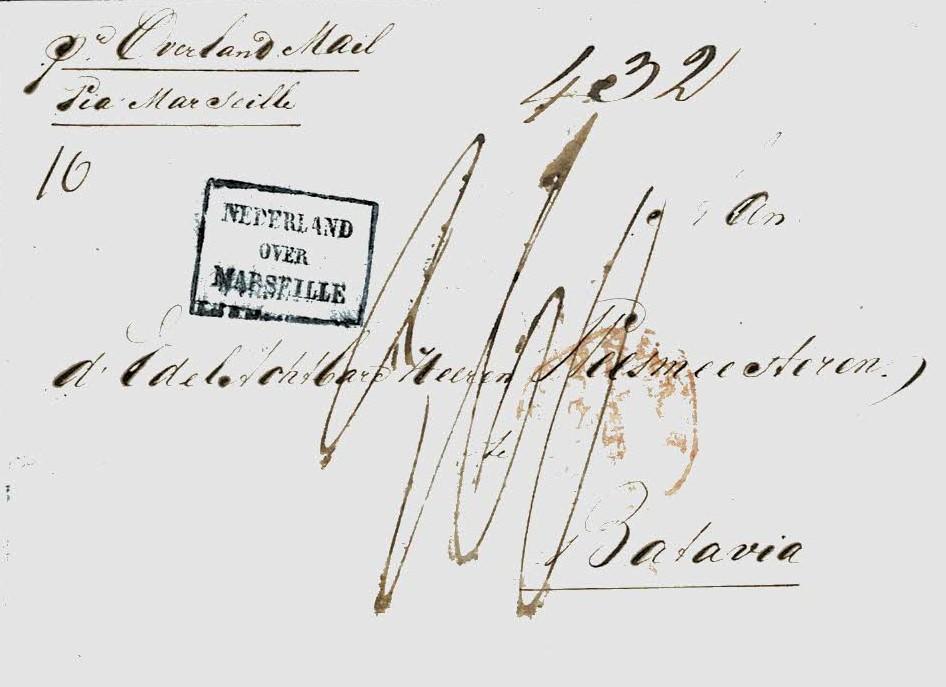 pr Overland Mail
via Marseille
432
16
An
NEDERLAND
OVER
MARSEILLE
d' Edel Achtbare Heeren Weesmeesteren.
te
Batavia